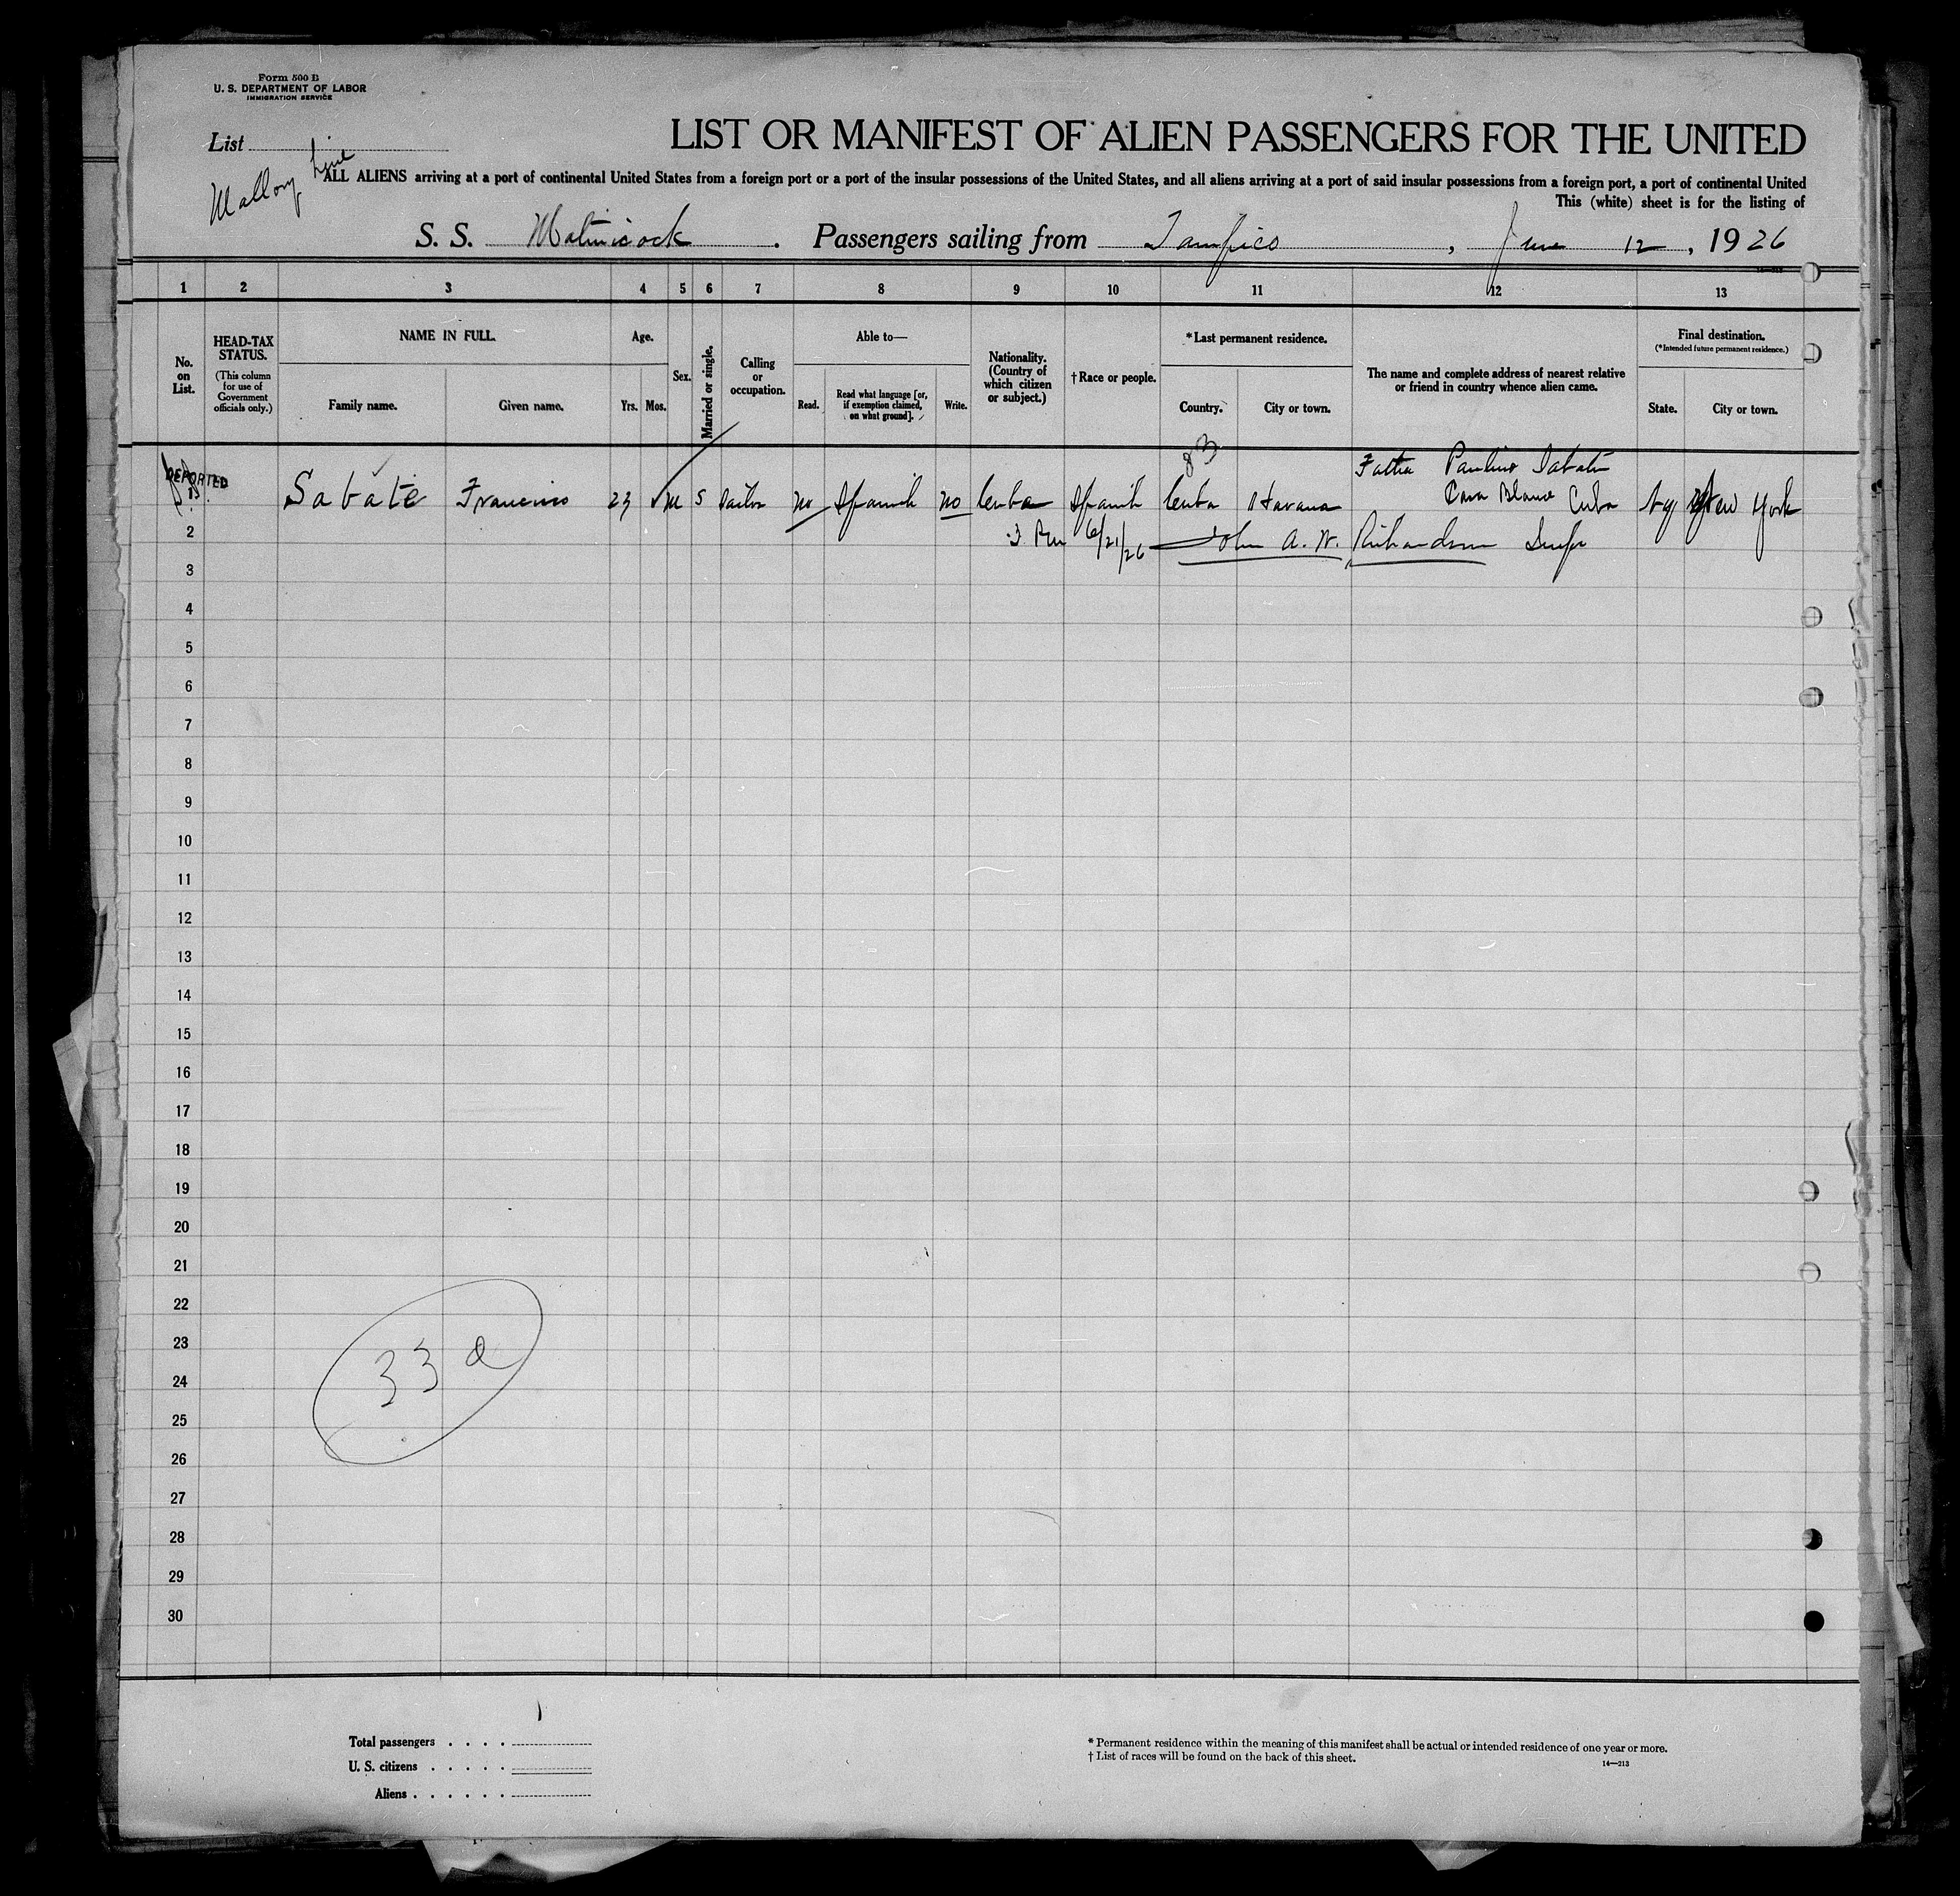 Form 500 B
U. S. DEPARTMENT OF LABOR
IMMIGRATION SERVICE
List
Mallory Line
LIST OR MANIFEST OF ALIEN PASSENGERS FOR THE UNITED
ALL ALIENS arriving at a port of continental United States from a foreign port or a port of the insular possessions of the United States, and all aliens arriving at a port of said insular possessions from a foreign port, a port of continental United
This (white) sheet is for the listing of
S. S. Matinicock . Passengers sailing from Tampico , June 12 , 1926
14—213
1 2 3 4 5 6 7 8 9 10 11 12 13
No. on List.
HEAD-TAX STATUS.
(This column for use of Government officials only.)
NAME IN FULL.
Family name. Given name.
Age.
Yrs. Mos.
Sex.
Married or single.
Calling or occupation.
Able to—
Read. Read what language [or, if exemption claimed, on what ground]. Write.
Nationality. (Country of which citizen or subject.)
†Race or people.
*Last permanent residence.
Country. City or town.
The name and complete address of nearest relative or friend in country whence alien came.
Final destination.
(*Intended future permanent residence.)
State. City or town.
83
DEPORTED
1 Sabaté Francisco 23 M S Sailor No Spanish No Cuba Spanish Cuba Havana Father Paulino Sabaté Casa Blanca Cuba NY New York
2 6/21/26 John A. W. Richardson
3
4
5
6
7
8
9
10
11
12
13
14
15
16
17
18
19
20
21
22
23
24
25
26
27
28
29
30
33 a
1
Total passengers
U. S. citizens
Aliens
* Permanent residence within the meaning of this manifest shall be actual or intended residence of one year or more.
† List of races will be found on the back of this sheet.
14—213